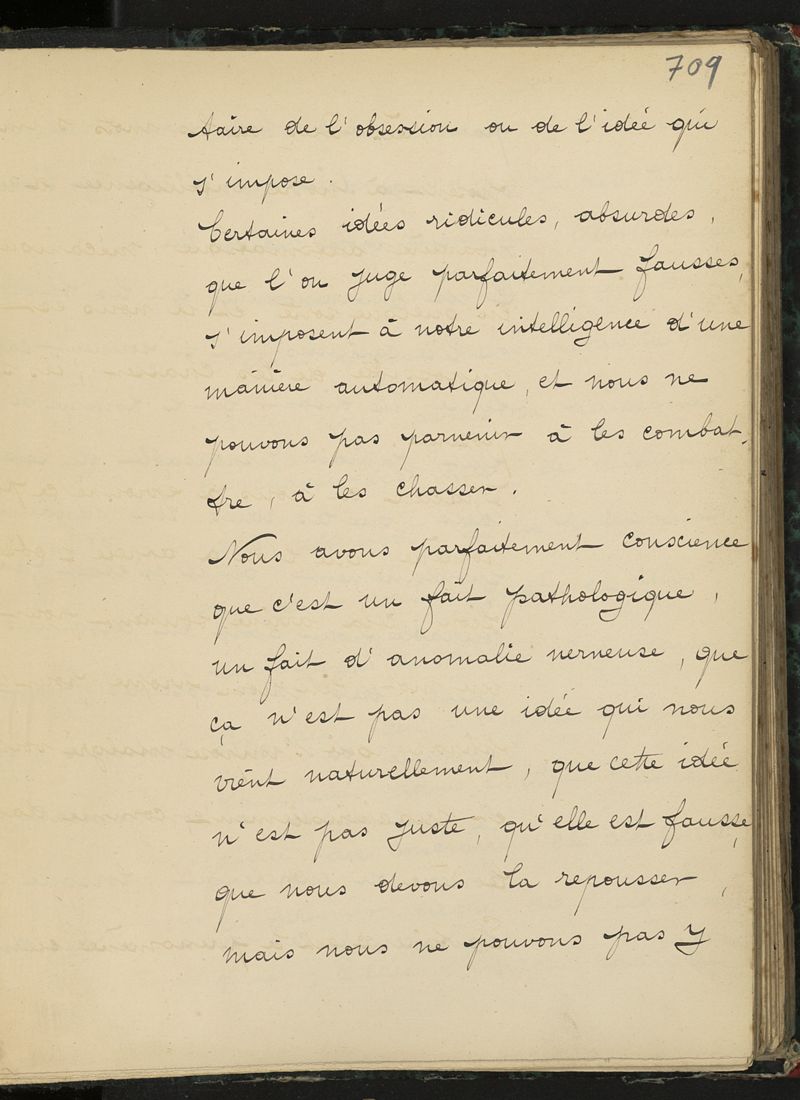 709
taire de l'obsession ou de l'idée qui
s'impose.
Certaines idées ridicules, absurdes,
que l'on juge parfaitement fausses,
s'imposent à notre intelligence d'une
manière automatique, et nous ne
pouvons pas parvenir à les combat-
tre, à les chasser.
Nous avons parfaitement conscience
que c'est un fait pathologique,
un fait d'anomalie nerveuse, que
ça n'est pas une idée qui nous
vient naturellement, que cette idée
n'est pas juste, qu'elle est fausse,
que nous devons la repousser,
mais nous ne pouvons pas y